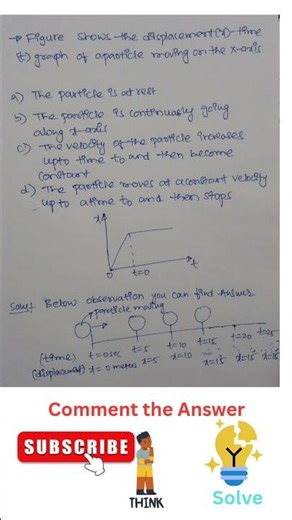 → Figure shows the displacement(x)-time
(t) graph of a particle moving on the x-axis
a) The particle is at rest
b) The particle is continuously going
along x-axis
c) The velocity of the particle increases
upto time to and then become
constant
d) The particle moves at a constant velocity
up to a time to and then stops
x
0
t=0
t
Solu: Below observation you can find Answer
particle moving
(time) t=0sec t=5 t=10 t=15 t=20 t=25
(displacement) x=0 meters x=5 x=10 x=15 x=15 x=15
Comment the Answer
SUBSCRIBE
THINK
Y
Solve